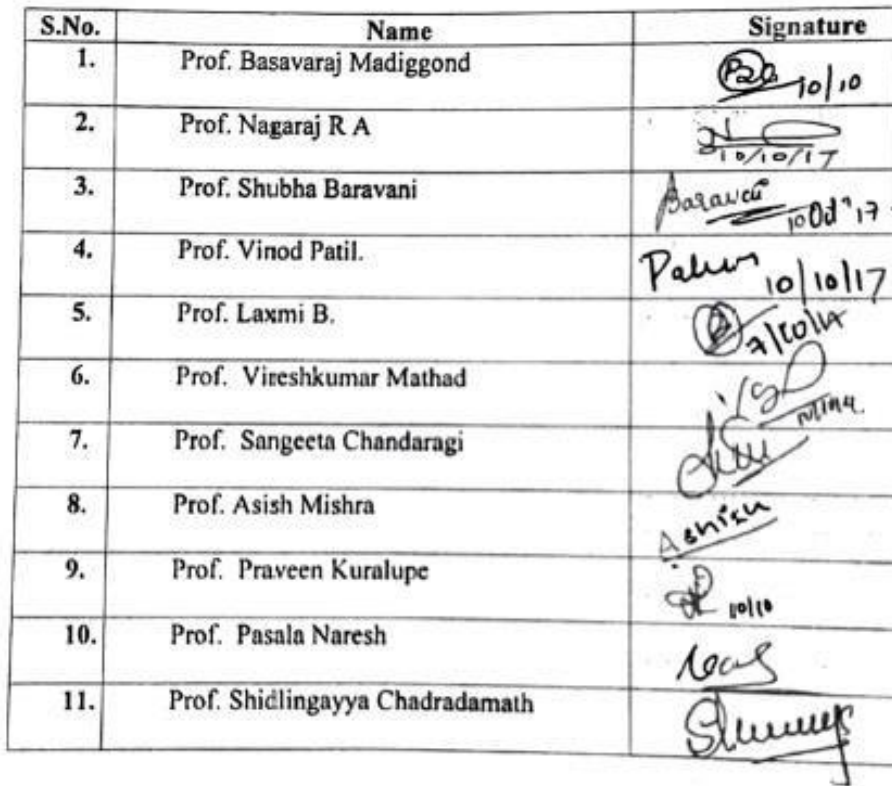 S.No. Name Signature
1. Prof. Basavaraj Madiggond 10/10
2. Prof. Nagaraj R A 10/10/17
3. Prof. Shubha Baravani 17
4. Prof. Vinod Patil. 10/10/17
5. Prof. Laxmi B.
6. Prof. Vireshkumar Mathad
7. Prof. Sangeeta Chandaragi
8. Prof. Asish Mishra Ashish
9. Prof. Praveen Kuralupe 10/10
10. Prof. Pasala Naresh
11. Prof. Shidlingayya Chadradamath